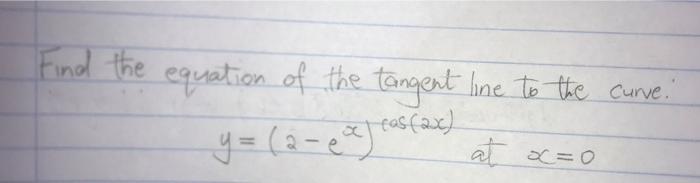 Find the equation of the tangent line to the curve:
y = (2 - e^x)^cos(2x) at x = 0